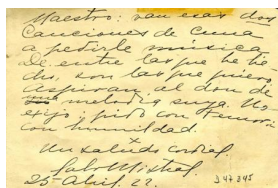 Maestro: van esas dos
Canciones de Cuna
a pedirle música
De entre las que he
son las que quiero.
Aspiran al don de
melodía suya. No
exijo; pido con
con humildad.
Un saludo cordial
Gab. Mistral
25-Abril. 22.